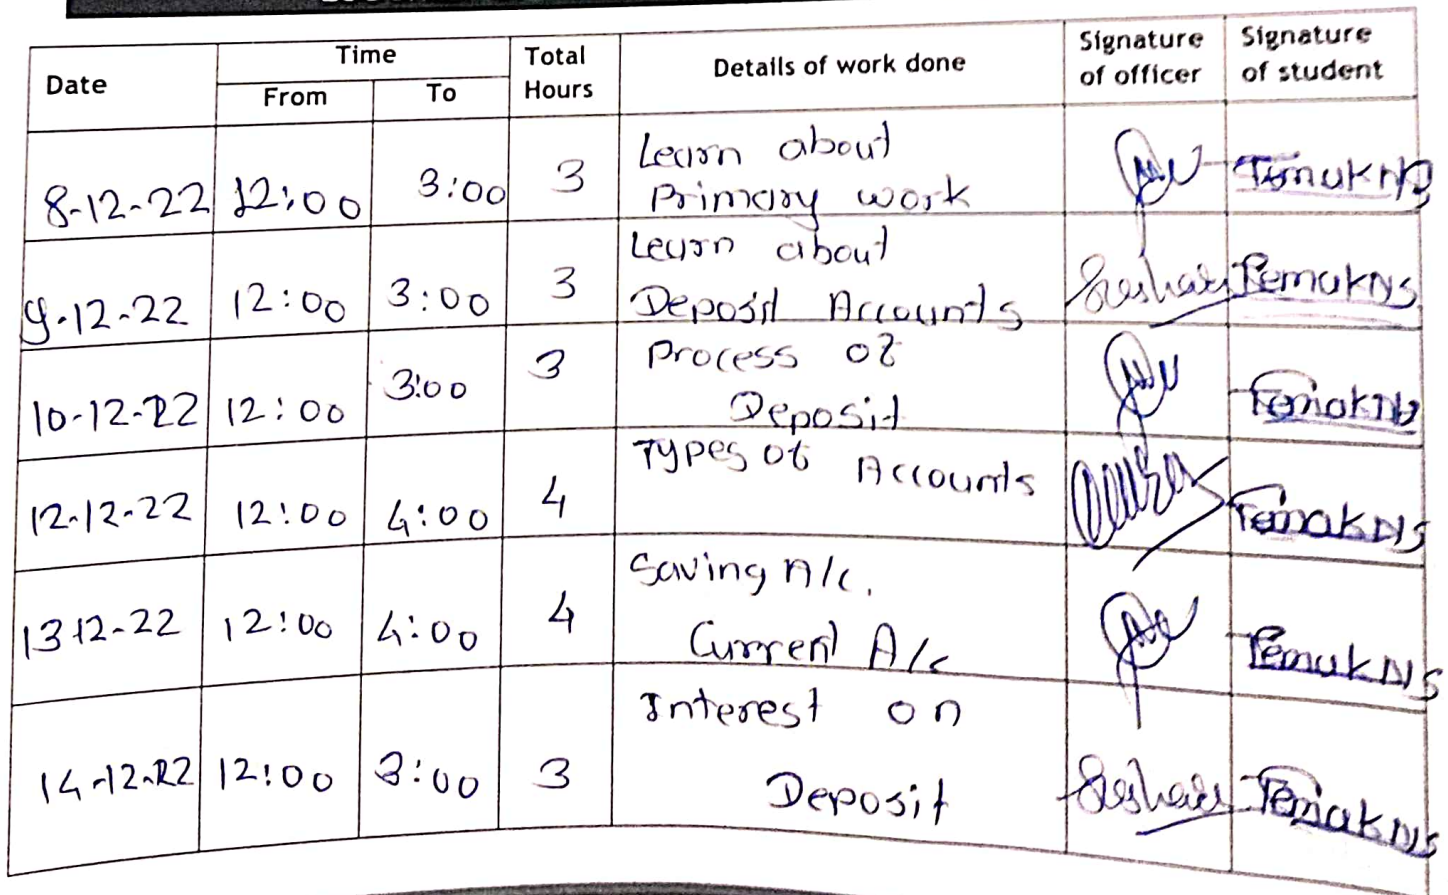 Date Time Total Hours Details of work done Signature of officer Signature of student
From To
8-12-22 12:00 3:00 3 Learn about
Primary work
9-12-22 12:00 3:00 3 Learn about
Deposit Accounts
10-12-22 12:00 3:00 3 Process of
Deposit
12-12-22 12:00 4:00 4 Types of Accounts
13 12-22 12:00 4:00 4 Saving A/c,
Current A/c
14-12-22 12:00 3:00 3 Interest on
Deposit